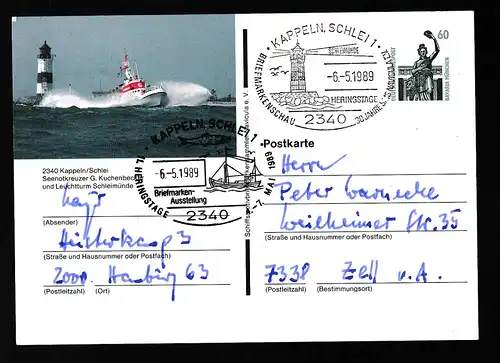 KAPPELN, SCHLEI 1
SCHLEIMÜNDE
-6.-5.1989
HERINGSTAGE
BRIEFMARKENSCHAU
30 JAHRE
2340
60
DEUTSCHE BUNDESPOST
BAVARIA MÜNCHEN
KAPPELN, SCHLEI 1
-6.-5.1989
Briefmarken-
Ausstellung
2340
HERINGSTAGE
-7. MAI 1989
2340 Kappeln/Schlei
Seenotkreuzer G. Kuchenbecker
und Leuchtturm Schleimünde
(Absender)
Heisterkamp 3
(Straße und Hausnummer oder Postfach)
2000 Hamburg 63
(Postleitzahl) (Ort)
Postkarte
Herrn
Peter Warnecke
Weilheimer Str. 35
(Straße und Hausnummer oder Postfach)
7338 Zell u. A.
(Postleitzahl) (Bestimmungsort)